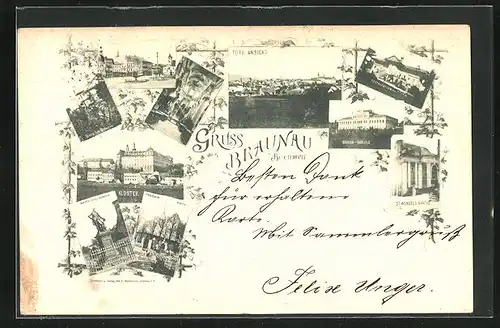 TOTAL ANSICHT
GRUSS
aus
BRAUNAU
Böhmen
KLOSTER
Besten Dank
für erhaltene
Karte.
Mit Sammlergruß
Felix Unger.